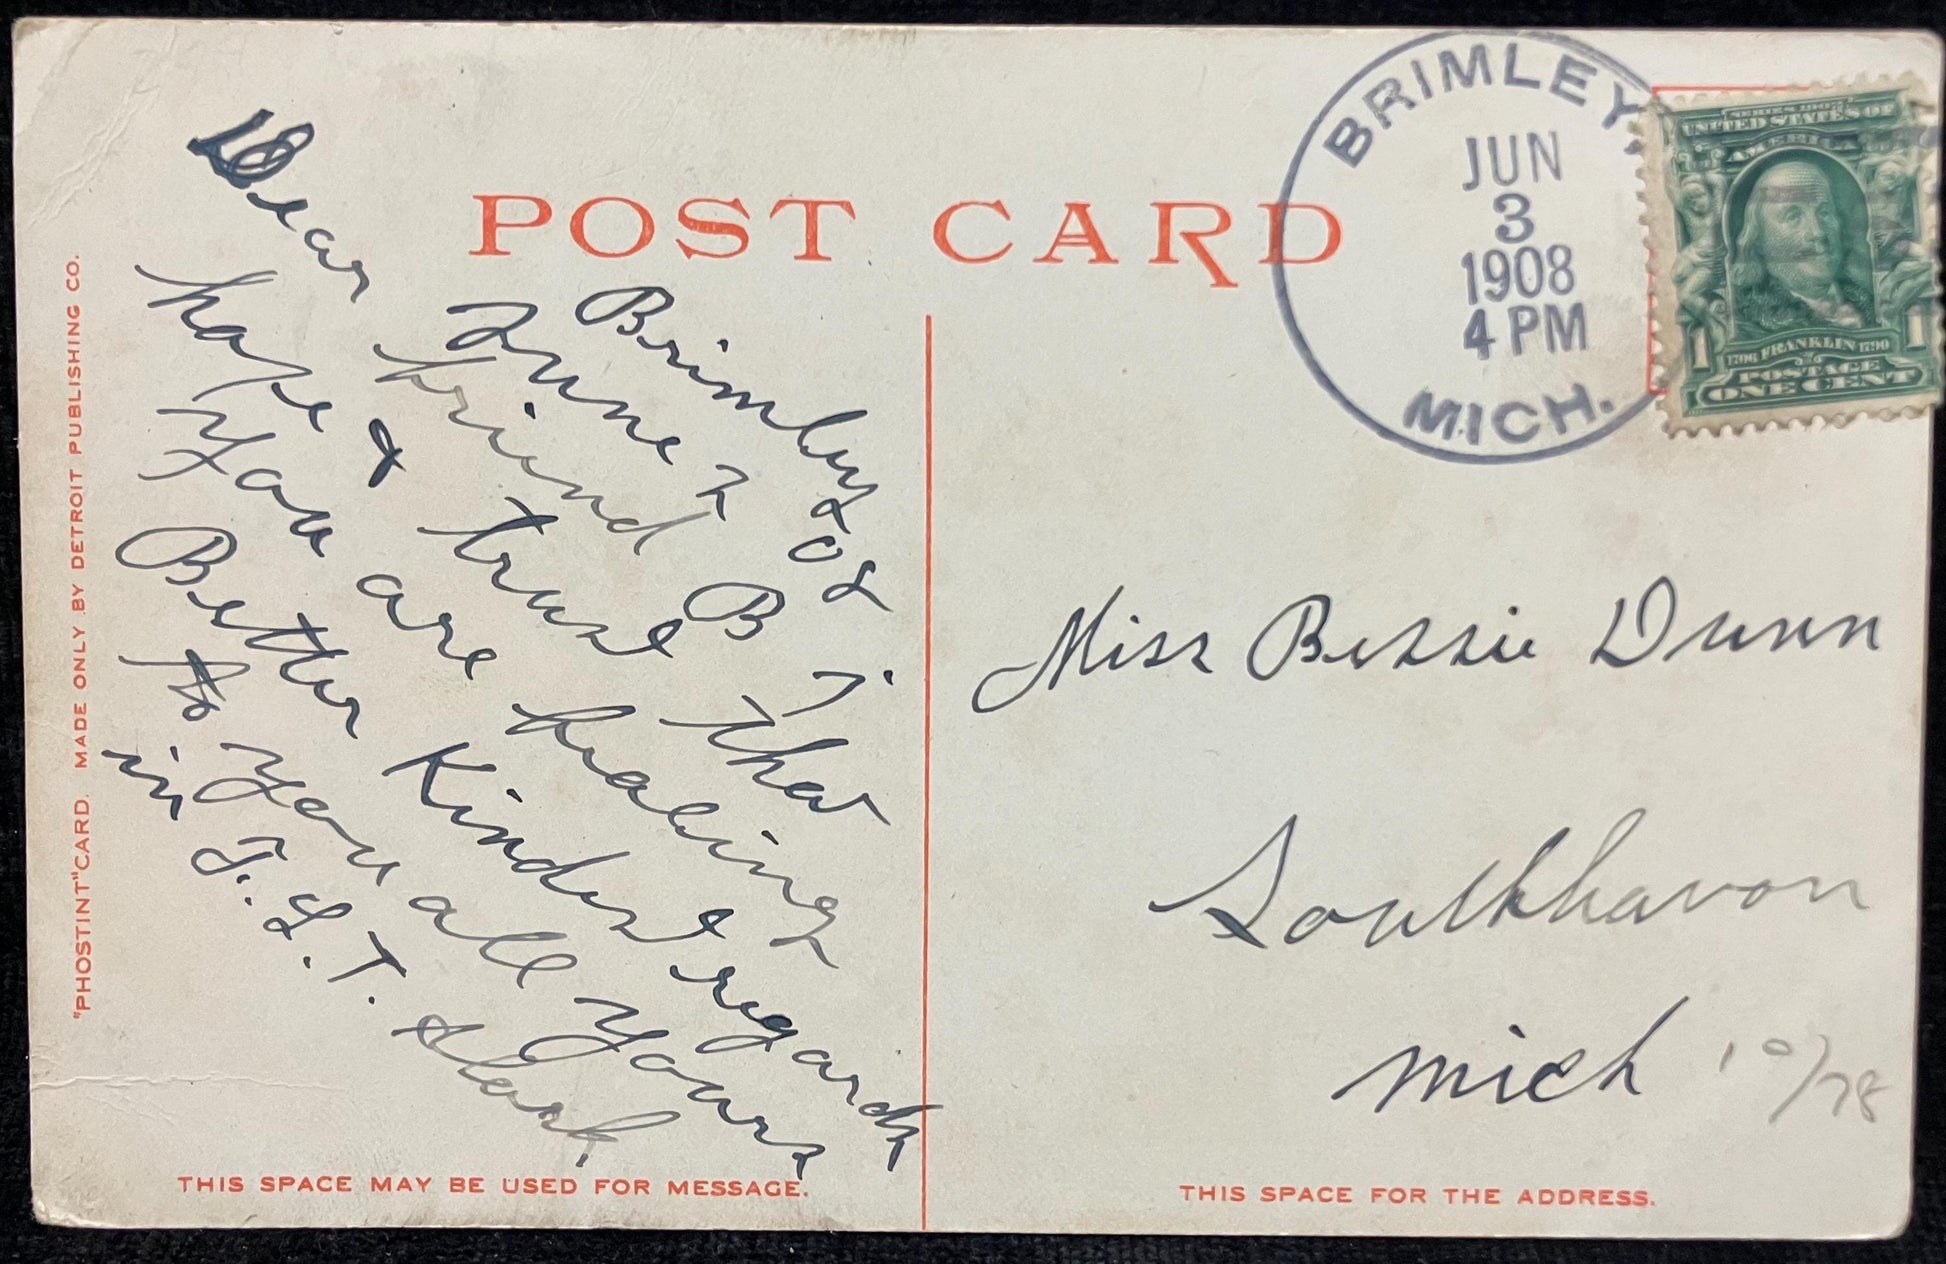 POST CARD
BRIMLEY,
JUN
3
1908
4 PM
MICH.
SERIES 1902
UNITED STATES OF
AMERICA
1706 FRANKLIN 1790
POSTAGE
1 ONE CENT 1
Brimley
June 2 08
Dear friend B I
hope & trust that
you are healing
Better Kindest regards
to you all yours
in F. L. T.
Miss Bessie Dunn
Southhavon
mich
10/78
"PHOSTINT" CARD. MADE ONLY BY DETROIT PUBLISHING CO.
THIS SPACE MAY BE USED FOR MESSAGE.
THIS SPACE FOR THE ADDRESS.